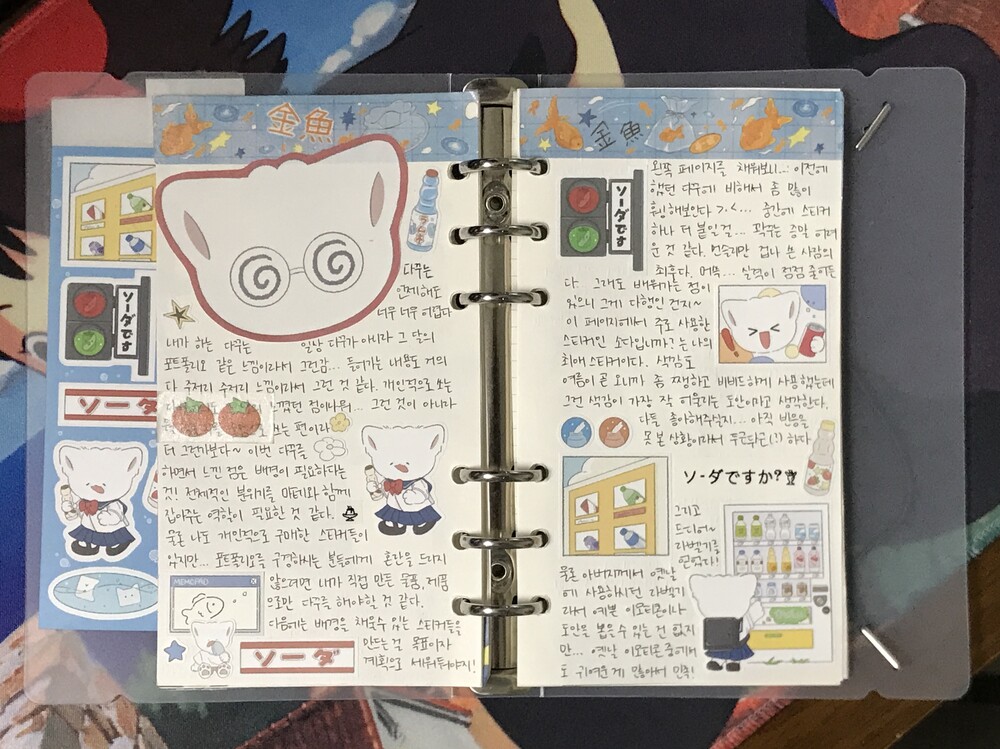 金魚
ラムネ
ソーダです
ソーダ
다꾸는
언제해도
너무 너무 어렵다
내가 하는 다꾸는 일상 다꾸가 아니라 그 달의
포트폴리오 같은 느낌이라서 그런감... 들어가는 내용도 거의
다 주저리 주저리 느낌이라서 그런 것 같다. 개인적으로 쓰는
느꼈던 점이나뭐... 그런 것이 아니라
는 편이라
더 그런가보다~ 이번 다꾸를
하면서 느낀 점은 배경이 필요하다는
것! 전체적인 분위기를 마테와 함께
잡아주는 역할이 필요한 것 같다.
물론 나도 개인적으로 구매한 스티커들이
있지만... 포트폴리오를 구경하시는 분들에게 혼란을 드리지
않으려면 내가 직접 만든 물품, 제품
으로만 다꾸를 해야할 것 같다.
다음에는 배경을 채울수 있는 스티커들을
만드는 걸 목표이자
계획으로 세워둬야지!
MEMOPAD
ソーダ
金魚
ソーダです
왼쪽 페이지를 채워보니... 이전에
했던 다꾸에 비해서 좀 많이
휑해보인다 ㅋ.ㅋ... 중간에 스티커
하나 더 붙일걸... 꽉꾸는 증말 어려
운 것 같다. 연습지만 겁나 쓴 사람의
최후다. 어쩌... 실력이 점점 줄어든
다. 그래도 배워가는 점이
있으니 그게 다행인 건지~
이 페이지에서 주로 사용한
스티커인 소다입니까?는 나의
최애 스티커이다. 색감도
여름이 곧 오니까 좀 쨍하고 비비드하게 사용했는데
그런 색감이 가장 잘 어울리는 도안이라고 생각한다.
다들 좋아해주실지... 아직 반응을
못 본 상황이라서 두근두근(!) 하다
ソーダですか?
그리고
드디어~
라벨기를
얻었다!
물론 아버지께서 옛날
에 사용하시던 라벨기
라서 예쁜 이모티콘이나
도안을 뽑을수 있는 건 없지
만... 옛날 이모티콘 중에서
도 귀여운게 많아서 만족!